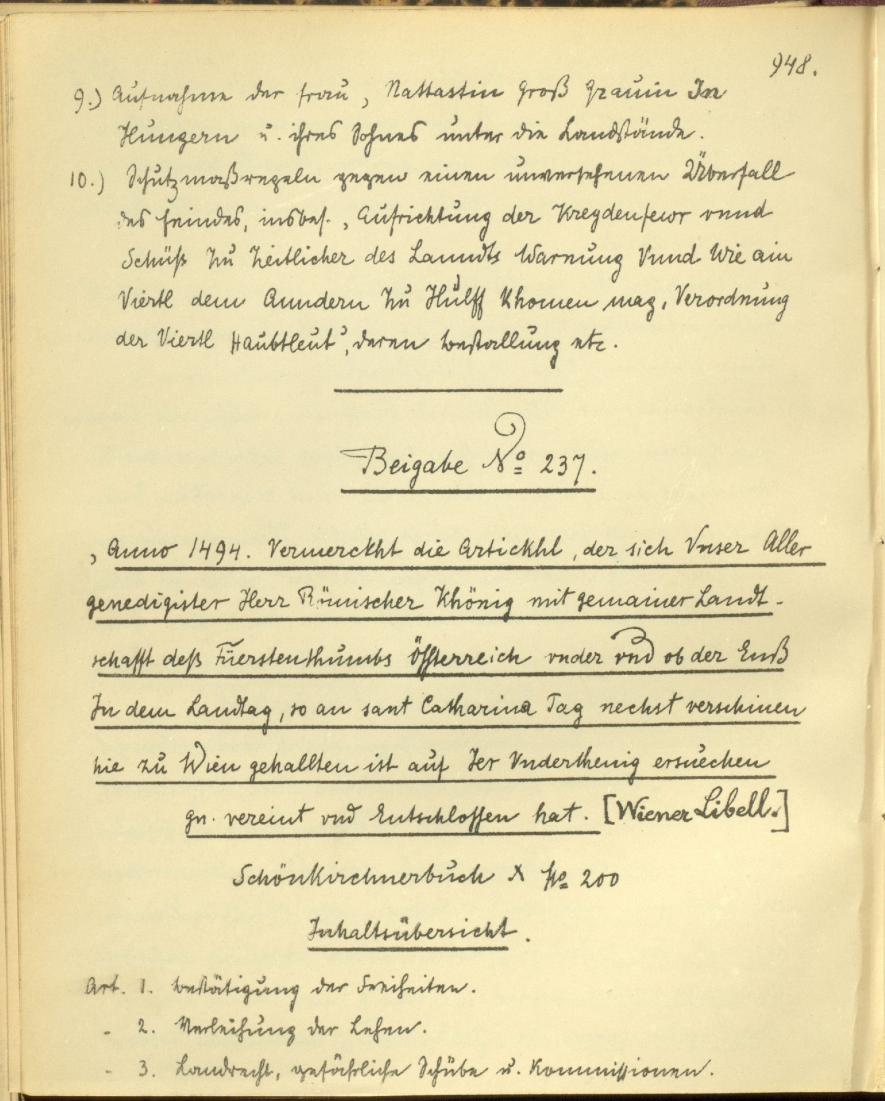 948.
9.) Aufnahme der frau, Nattastin Groß Grauin In
Hungern u. ihres Sohnes unter die Landstände.
10.) Schutzmaßregeln gegen einen unversehenen Überfall
des Feindes, insbes. „Aufrichtung der Kreydenfewr vnnd
Schüß Zu Zeitlicher des Lanndts Warnung Vnnd Wie ain
Viertl dem Anndern Zu Hülff Khomen mag, Verordnung
der Viertl Haubtleut", deren Bestallung etc.
Beigabe No 237.
„Anno 1494. Vermerckht die Artickhl, der sich Vnser Aller
genedigister Herr Römischer Khönig mit gemainer Landt-
schafft deß Füerstenthumbs Össterreich vnder vnd ob der Enß
In dem Landtag, so an sant Catharina Tag nechst verschinen
hie zu Wien gehallten ist auf Jer Vnderthenig ersuechen
gn. vereint vnd Entschlossen hat. [Wiener Libell.]
Schönkirchnerbuch X No 200
Inhaltsübersicht.
Art. 1. Bestätigung der Freiheiten.
" 2. Verleihung der Lehen.
" 3. Landrecht, gefährliche Schübe u. Kommissionen.